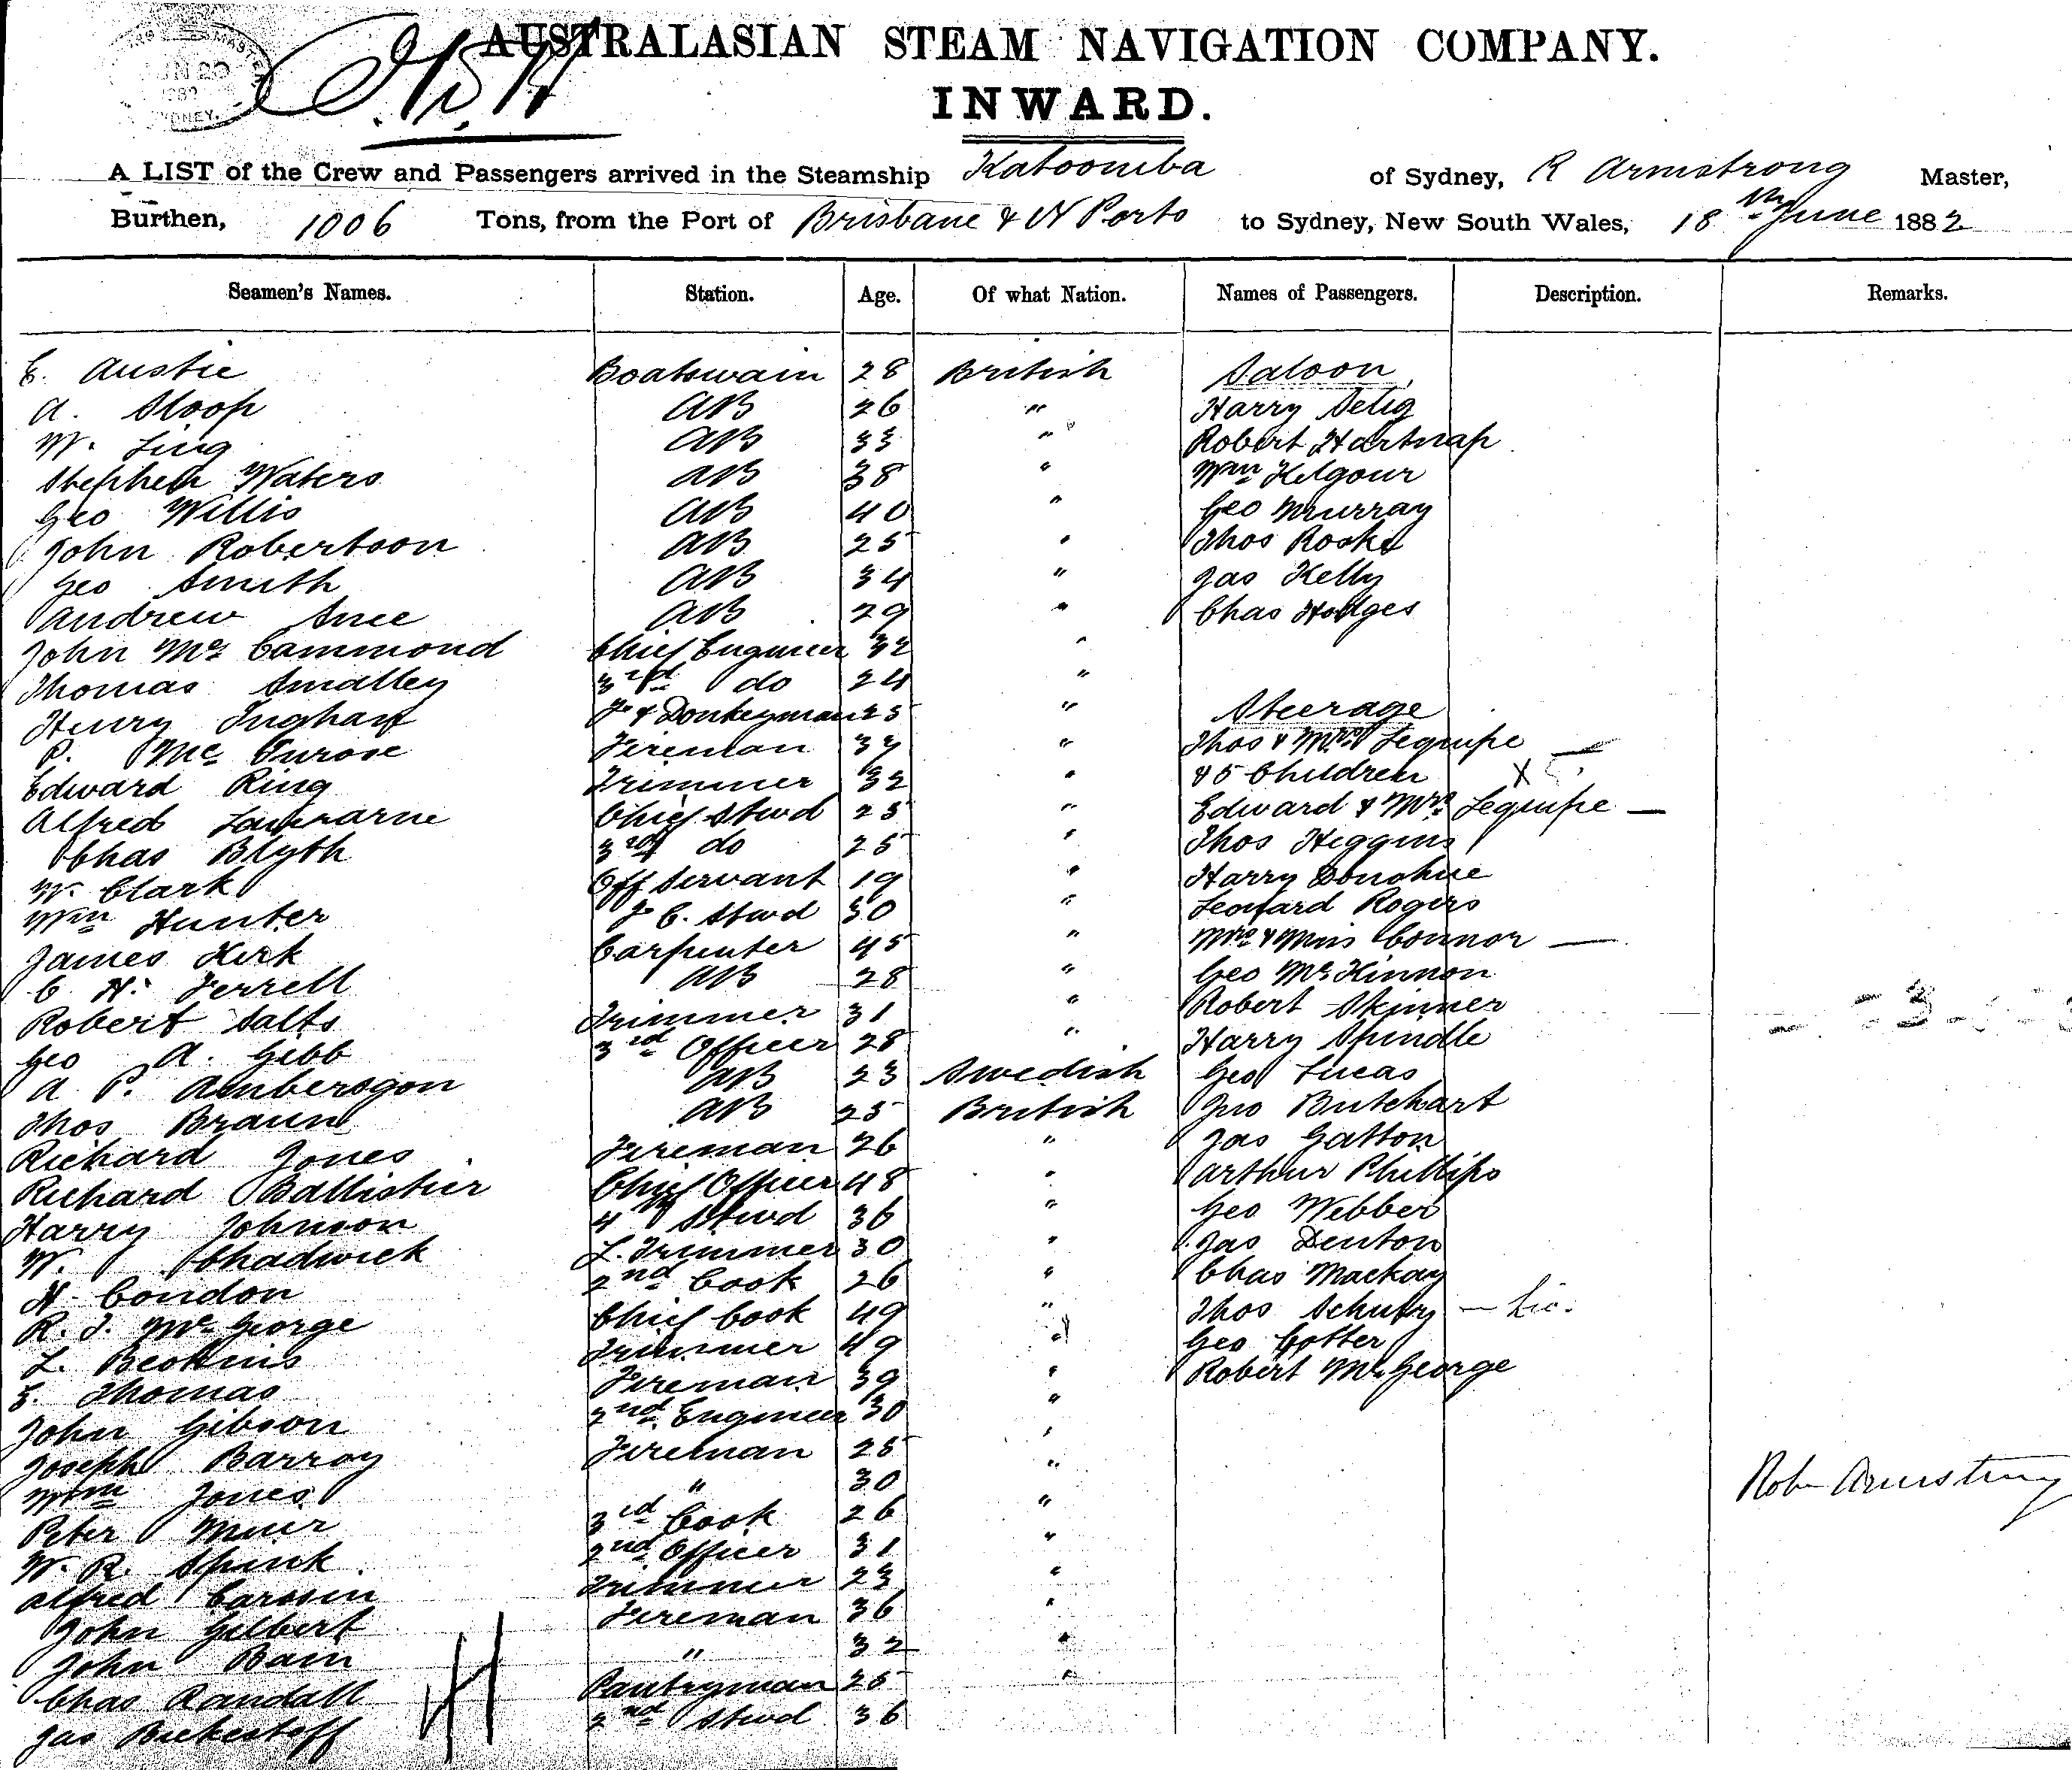 AUSTRALASIAN STEAM NAVIGATION COMPANY.
INWARD.
A LIST of the Crew and Passengers arrived in the Steamship Katoomba of Sydney, R Armstrong Master,
Burthen, 1006 Tons, from the Port of Brisbane & N Ports to Sydney, New South Wales, 18th June 1882
Seamen's Names. Station. Age. Of what Nation. Names of Passengers. Description. Remarks.
E. Austie Boatswain 28 British Saloon
A. Sloop AB 26 " Harry Selig
W. Ling AB 33 " Robert Hartnap
Stephen Waters AB 38 " Wm Kilgour
Geo Willis AB 40 " Geo Murray
John Robertson AB 25 " Thos Rooke
Geo Smith AB 34 " Jas Kelly
Andrew Snee AB 29 " Chas Hodges
John McCammond Chief Engineer 32 "
Thomas Smalley 3rd do 24 "
Henry Ingham & Donkeyman 25 " Steerage
P. Mc Fireman 37 " Thos & Mrs Lequipe
Edward Ring Trimmer 32 " & 5 Children X
Alfred Chief Stwd 25 " Edward & Mrs Lequipe —
Chas Blyth 3rd do 25 " Thos Higgins
W. Clark Off Servant 19 " Harry Donohue
Wm Hunter C. Stwd 30 " Leonard Rogers
James Kirk Carpenter 45 " Mrs & Miss Connor —
C. H. Ferrell AB 28 " Geo McKinnon
Robert Salts Trimmer 31 " Robert Skinner
Geo A. Gibb 3rd Officer 28 " Harry Spindle
A P. Ambersgon AB 23 Swedish Geo Lucas
Thos Braund AB 25 British Jno Butchart
Richard Jones Fireman 26 " Jas Gatton
Richard Ballistier Chief Officer 48 " Arthur Phillips
Harry Johnson 4th Stwd 36 " Geo Webber
W. Chadwick Trimmer 30 " Jas Denton
N. Condon 2nd Cook 26 " Chas Mackay
R. J. McGeorge Chief Cook 49 " Thos Schultz —
L. Beckins Trimmer 49 " Geo Cotter
E. Thomas Fireman 39 " Robert McGeorge
John Gibson 2nd Engineer 30 "
Joseph Barroy Fireman 25 "
Wm Jones " 30 "
Peter Muir 3rd Cook 26 "
W. R. Spink 2nd Officer 31 "
Alfred Carssen Trimmer 23 "
John Gilbert Fireman 36 "
John Bain " 32 "
Chas Randall Pantryman 25 "
Jas Bickestoff 2nd Stwd 36
Robt Armstrong